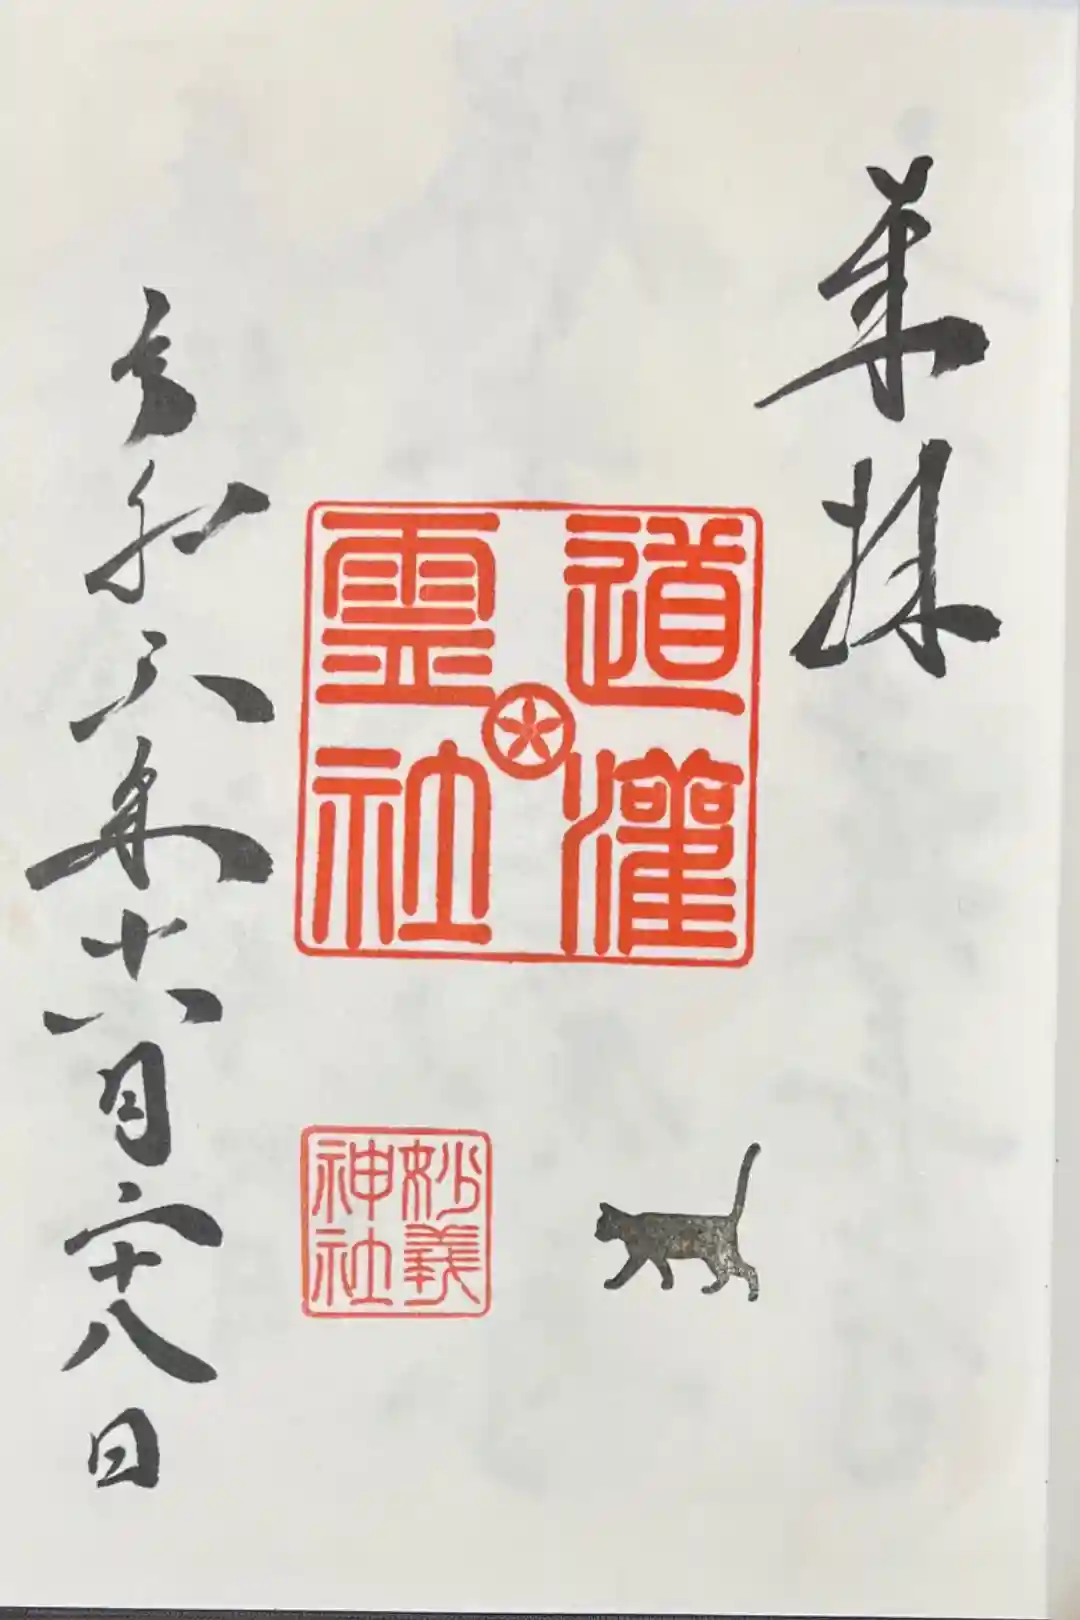 奉拝
道灌
霊社
妙義
神社
令和六年六月二十八日